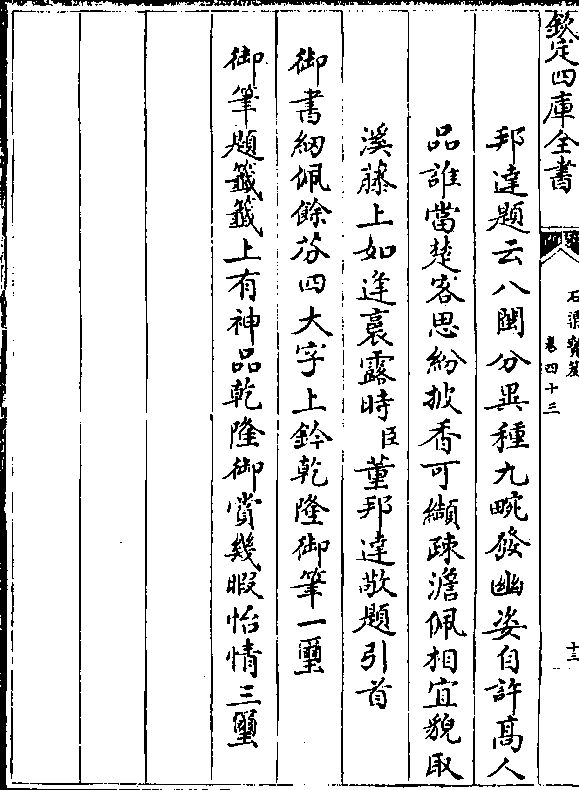 欽定四庫全書
石渠寶笈
卷四十三
十三
邦達題云八閩分異種九畹發幽姿自許髙人
品誰當楚客思紛披香可纈踈澹佩相宜貌取
溪藤上如逢裛露時臣董邦達敬題引首
御書紉佩餘芬四大字上鈐乾隆御筆一璽
御筆題籤籤上有神品乾隆御賞幾暇怡情三璽